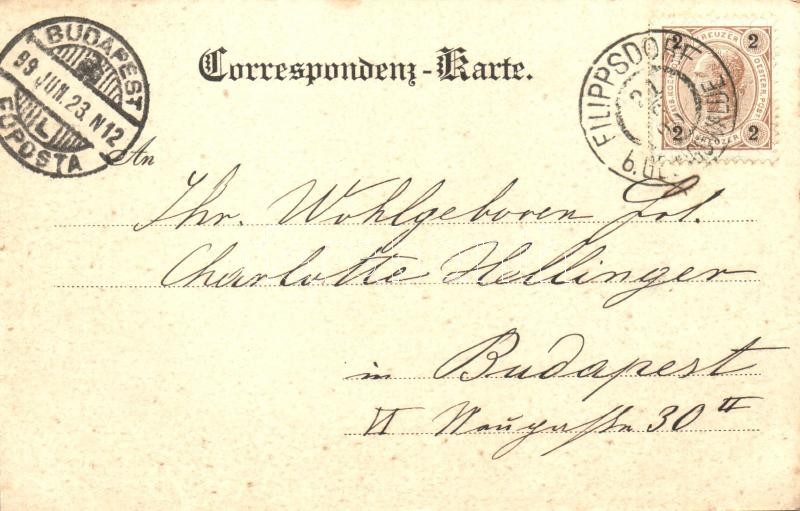 BUDAPEST
99 JUN. 23. N12
L
FŐPOSTA
Correspondenz-Karte.
FILIPPSDORF
2 KREUZER 2
OESTERR. POST
2 KREUZER 2
An
Ihr. Wohlgeboren
Charlotte Hellinger
in Budapest
VI 30 II